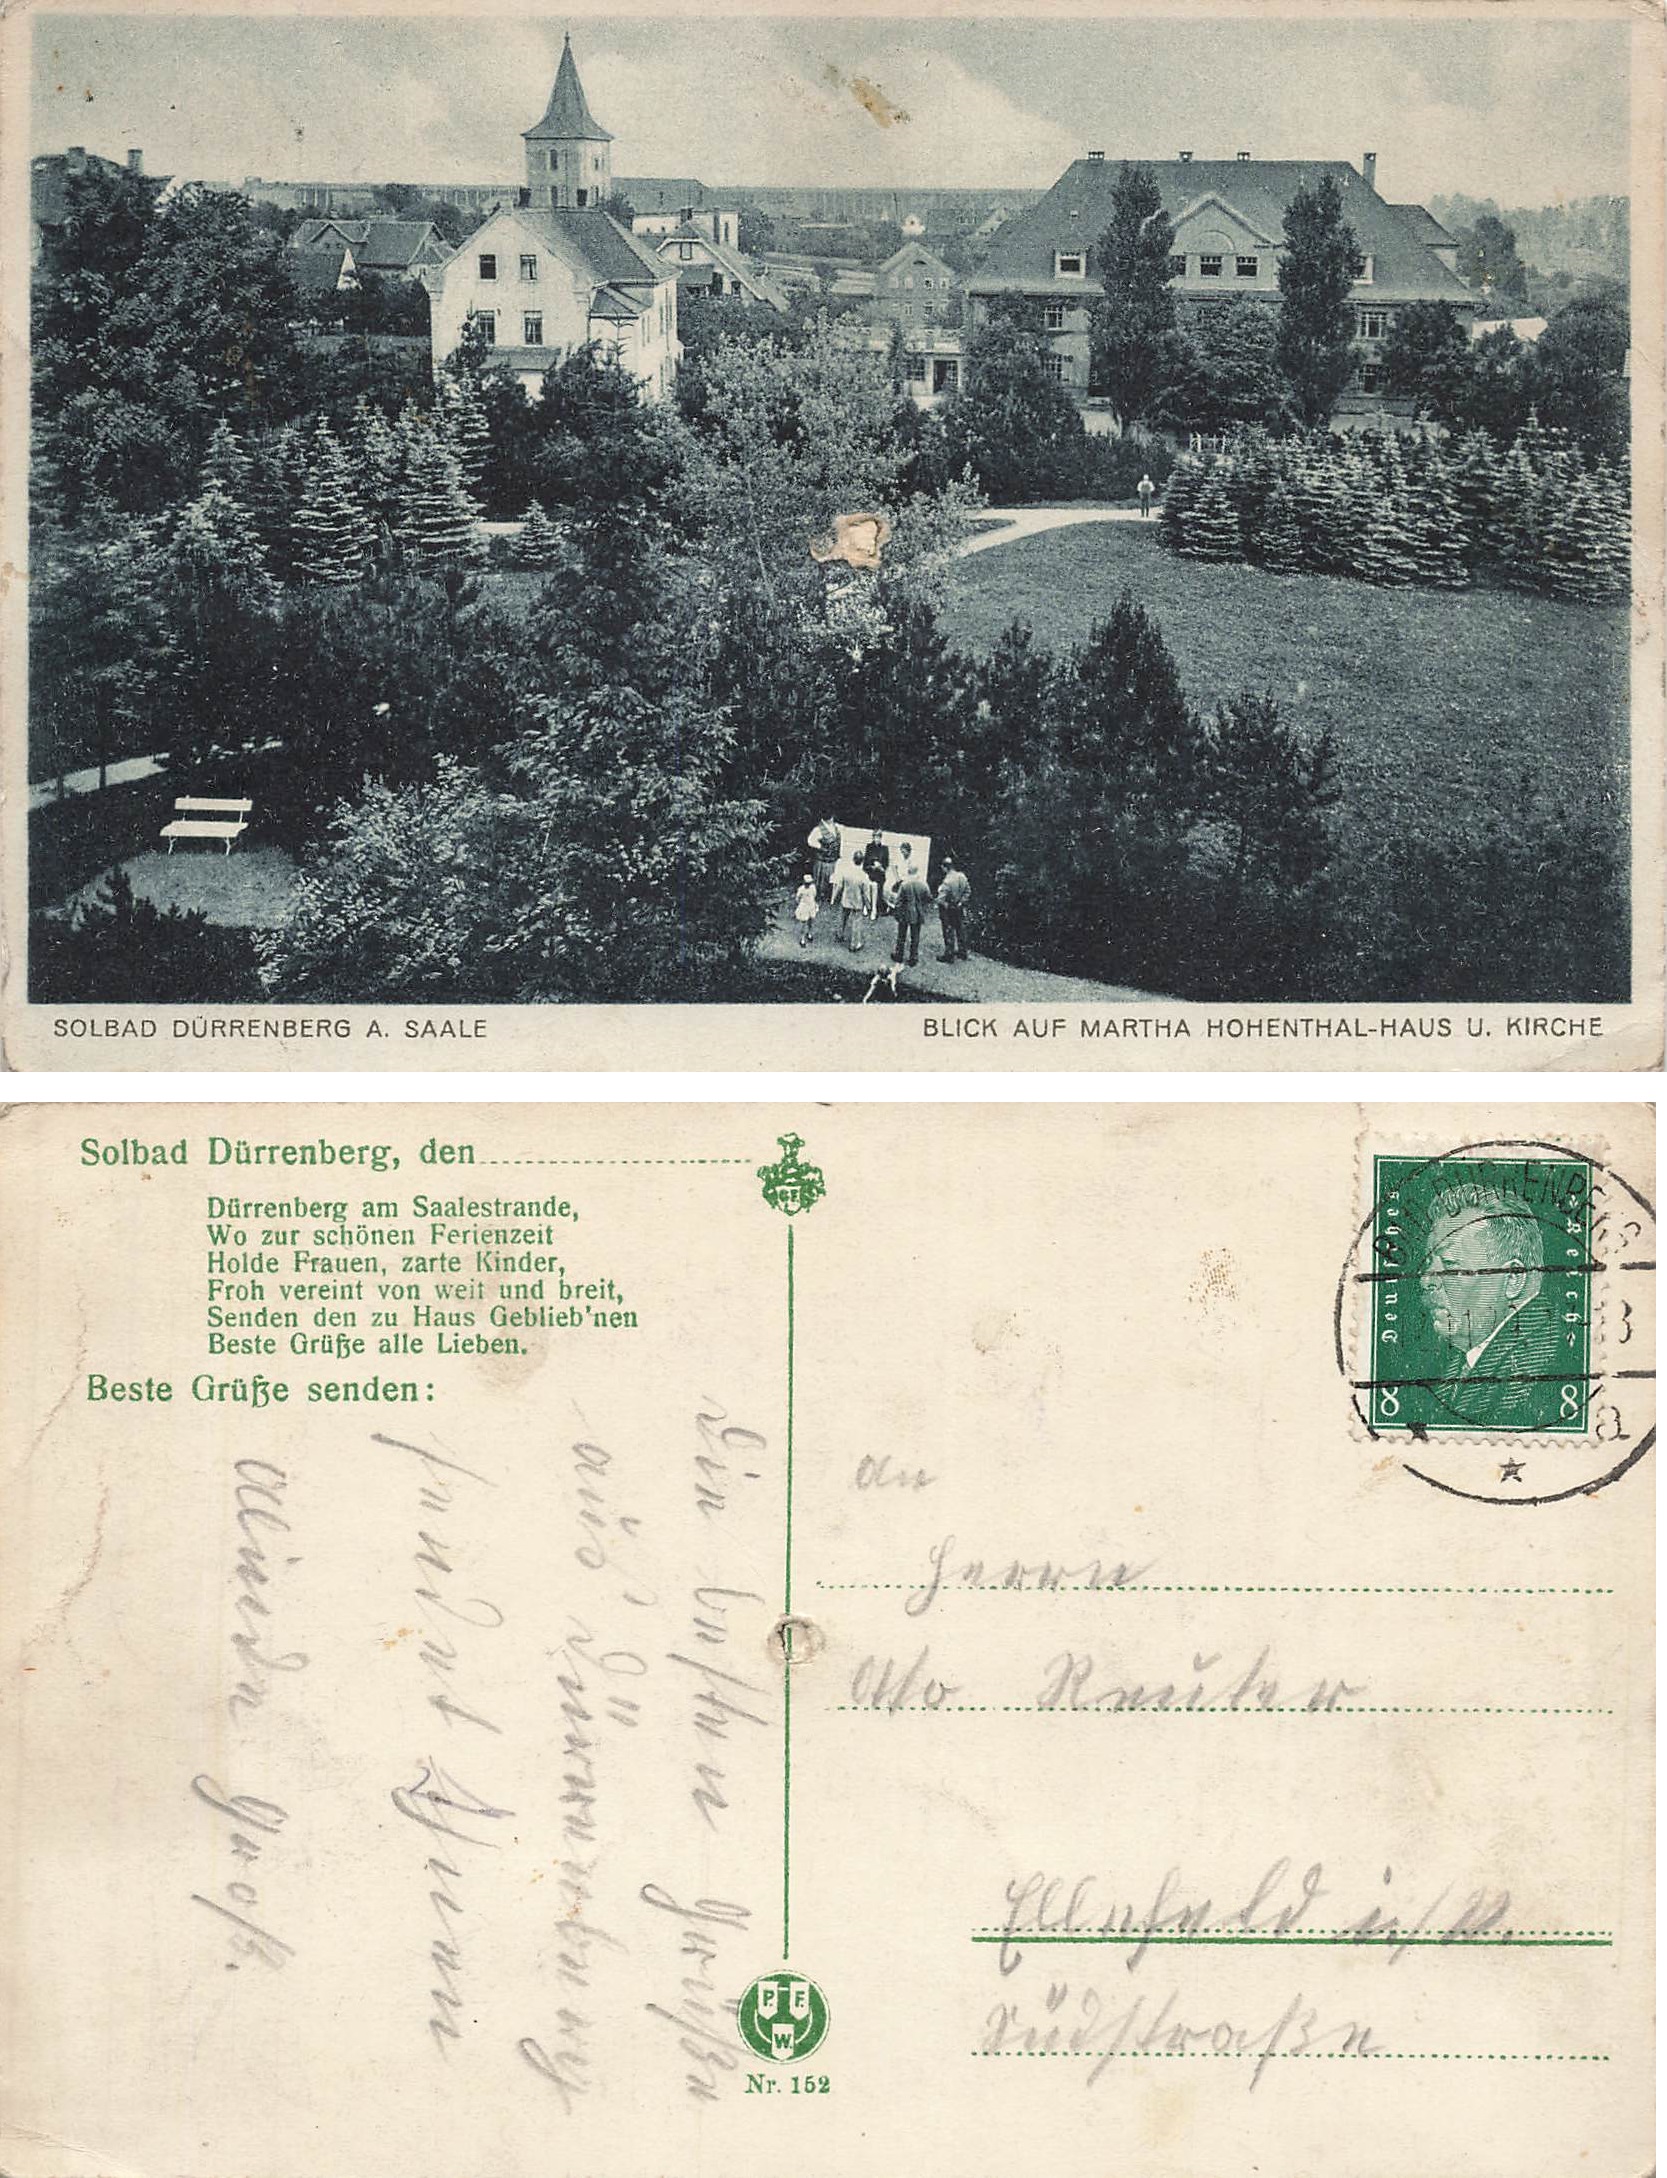 SOLBAD DÜRRENBERG A. SAALE
BLICK AUF MARTHA HOHENTHAL-HAUS U. KIRCHE
Solbad Dürrenberg, den
Dürrenberg am Saalestrande,
Wo zur schönen Ferienzeit
Holde Frauen, zarte Kinder,
Froh vereint von weit und breit,
Senden den zu Haus Geblieb'nen
Beste Grüße alle Lieben.
Beste Grüße senden:
Die besten Grüßen
aus Dürrenberg
sendet Ihnen
Groß.
G F
Deutsches Reich
8 8
BAD DÜRRENBERG
a
An
Herrn
Reuter
Ellefeld i/V.
Südstraße
P. F.
W.
Nr. 152